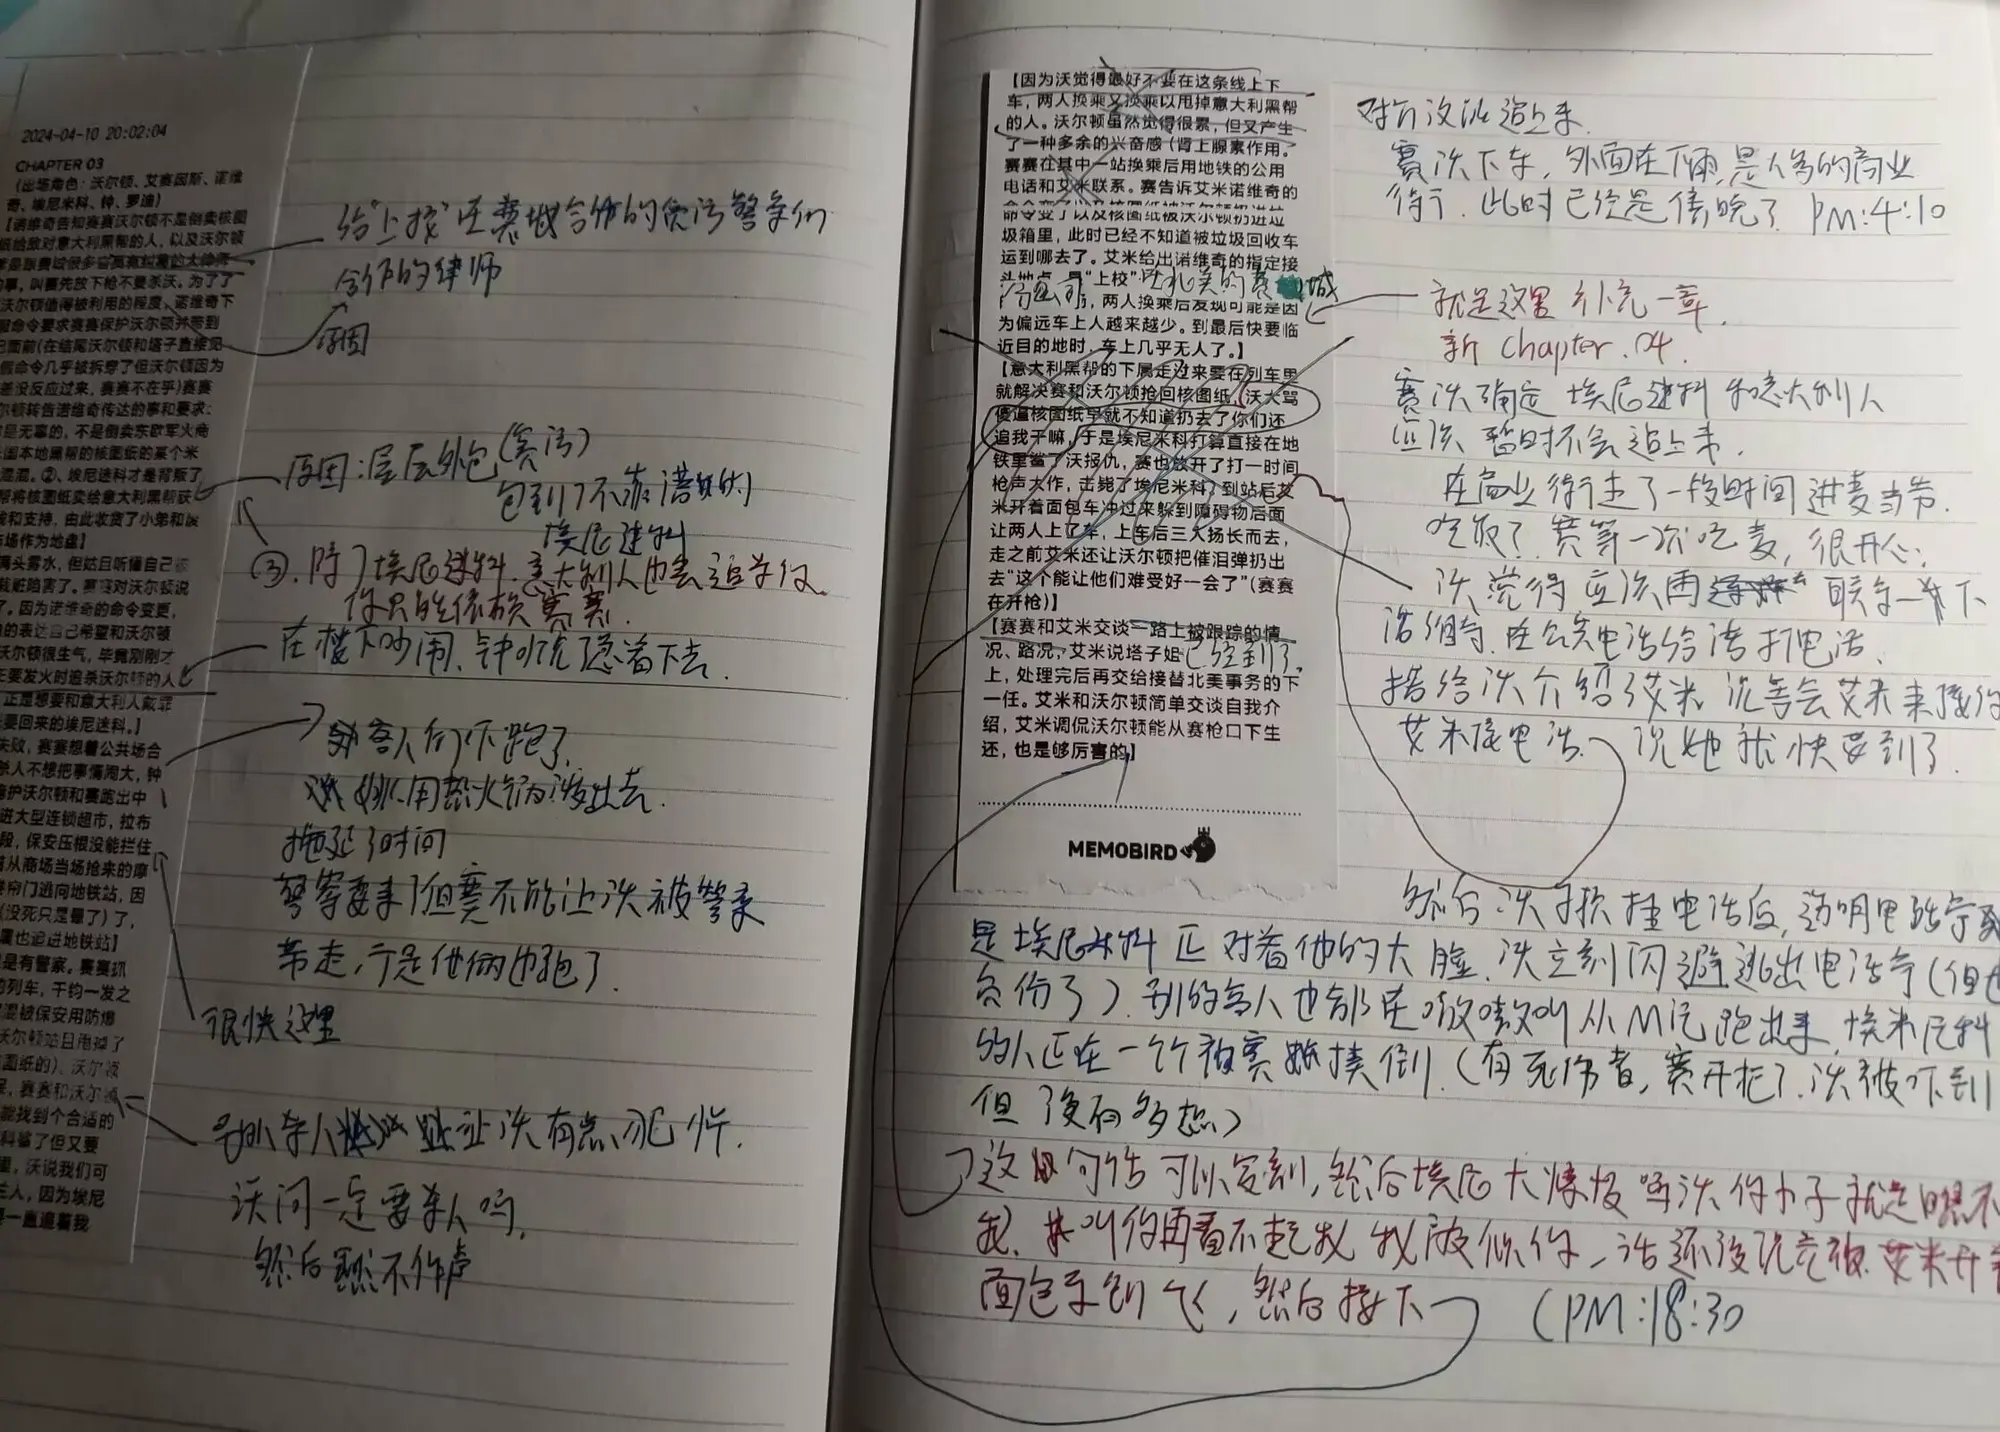 2024-04-10 20:02:04
CHAPTER 03
(出场角色：沃尔顿、艾赛因斯、诺维
奇、埃尼米科、钟、罗迪)
【诺维奇告知赛赛沃尔顿不是倒卖核图
纸给敌对意大利黑帮的人，以及沃尔顿
事，叫赛先放下枪不要杀沃。为了了
沃尔顿值得被利用的程度，诺维奇下
假命令要求赛赛保护沃尔顿并带到
己面前(在结尾沃尔顿和塔子直接见
假命令几乎被拆穿了但沃尔顿因为
差没反应过来，赛赛不在乎)赛赛
尔顿转告诺维奇传达的事和要求：
是无辜的，不是倒卖东欧军火商
国本地黑帮的核图纸的某个米
混混。②、埃尼迷科才是背叛了
帮将核图纸卖给意大利黑帮获
线和支持，由此收货了小弟和废
场作为地盘】
满头雾水，但姑且听懂自己被
栽赃陷害了。赛赛对沃尔顿说
了。因为诺维奇的命令变更，
的表达自己希望和沃尔顿
沃尔顿很生气，毕竟刚刚才
正要发火时追杀沃尔顿的人
正是想要和意大利人戴罪
要回来的埃尼迷科。】
失败，赛赛想着公共场合
杀人不想把事情闹大，钟
掩护沃尔顿和赛跑出中
进大型连锁超市，拉布
段，保安压根没能拦住
着从商场当场抢来的摩
卷帘门逃向地铁站，因
(没死只是晕了)了，
属也追进地铁站】
是有警察。赛赛抓
的列车，千钧一发之
混被保安用防爆
沃尔顿站且甩掉了
图纸的)。沃尔顿
赛赛和沃尔顿
能找到个合适的
科鲨了但又要
里，沃说我们可
兰人，因为埃尼
得一直追着我
给"上校"在费城合作的贪污警察们
合作的律师
原因
原因：层层外包(赛活)
包到了不靠谱的
埃尼迷科
③.除了埃尼迷科，意大利人也会追杀你
你只能依赖赛赛.
在楼下吵闹、钟慌忙看下去.
客人们吓跑了.
用热火锅泼出去.
拖延了时间
警察要来了但赛不能让沃被警察
带走，于是他俩也跑了.
很快这里
杀人让沃有点犯怵.
沃问一定要杀人吗.
然后默不作声
【因为沃觉得最好不要在这条线上下
车，两人换乘又换乘以甩掉意大利黑帮
的人。沃尔顿虽然觉得很累，但又产生
了一种多余的兴奋感(肾上腺素作用。
赛赛在其中一站换乘后用地铁的公用
电话和艾米联系。赛告诉艾米诺维奇的
命令变了以及核图纸被沃尔顿扔进垃
圾箱里，此时已经不知道被垃圾回收车
运到哪去了。艾米给出诺维奇的指定接
头地点，是"上校"在北美的费城
公司，两人换乘后发现可能是因
为偏远车上人越来越少。到最后快要临
近目的地时，车上几乎无人了。】
【意大利黑帮的下属走过来要在列车里
就解决赛和沃尔顿抢回核图纸，沃大骂
傻逼核图纸早就不知道扔去了你们还
追我干嘛，于是埃尼米科打算直接在地
铁里鲨了沃报仇，赛也放开了打一时间
枪声大作，击毙了埃尼米科？到站后艾
米开着面包车冲过来躲到障碍物后面
让两人上了车，上车后三人扬长而去，
走之前艾米还让沃尔顿把催泪弹扔出
去"这个能让他们难受好一会了"(赛赛
在开枪)】
【赛赛和艾米交谈一路上被跟踪的情
况、路况，艾米说塔子姐已经到了.
上，处理完后再交给接替北美事务的下
一任。艾米和沃尔顿简单交谈自我介
绍，艾米调侃沃尔顿能从赛枪口下生
还，也是够厉害的】
MEMOBIRD
对方没能追上来.
赛沃下车，外面在下雨,是人多的商业
街。此时已经是傍晚了 PM:4:10
就是这里 补充一章.
新 Chapter.04.
赛沃确定埃尼迷科和意大利人
应该暂时不会追上来.
在商业街走了一段时间进麦当劳.
吃饭了.赛第一次吃麦，很开心；
沃觉得应该再联系一下
诺维奇.在公共电话给诺打电话.
诺给沃介绍了艾米 说等会艾米来接你
艾米接电话 说她就快要到了.
然后沃挂电话后,透明电话亭
是埃尼米科正对着他的大脸.沃立刻闪避逃出电话亭(但也
负伤了).别的客人也都在嗷嗷叫从M记跑出来.埃米尼科
的人正在一个个被赛赛揍倒.(有死伤者，赛开枪了.沃被吓到
但没有多想)
这句话可以复刻，然后埃尼大爆fan骂沃你小子就是瞧不
我.叫你再看不起我我,话还没说完被艾米开
面包车创飞，然后接下 (PM:18:30